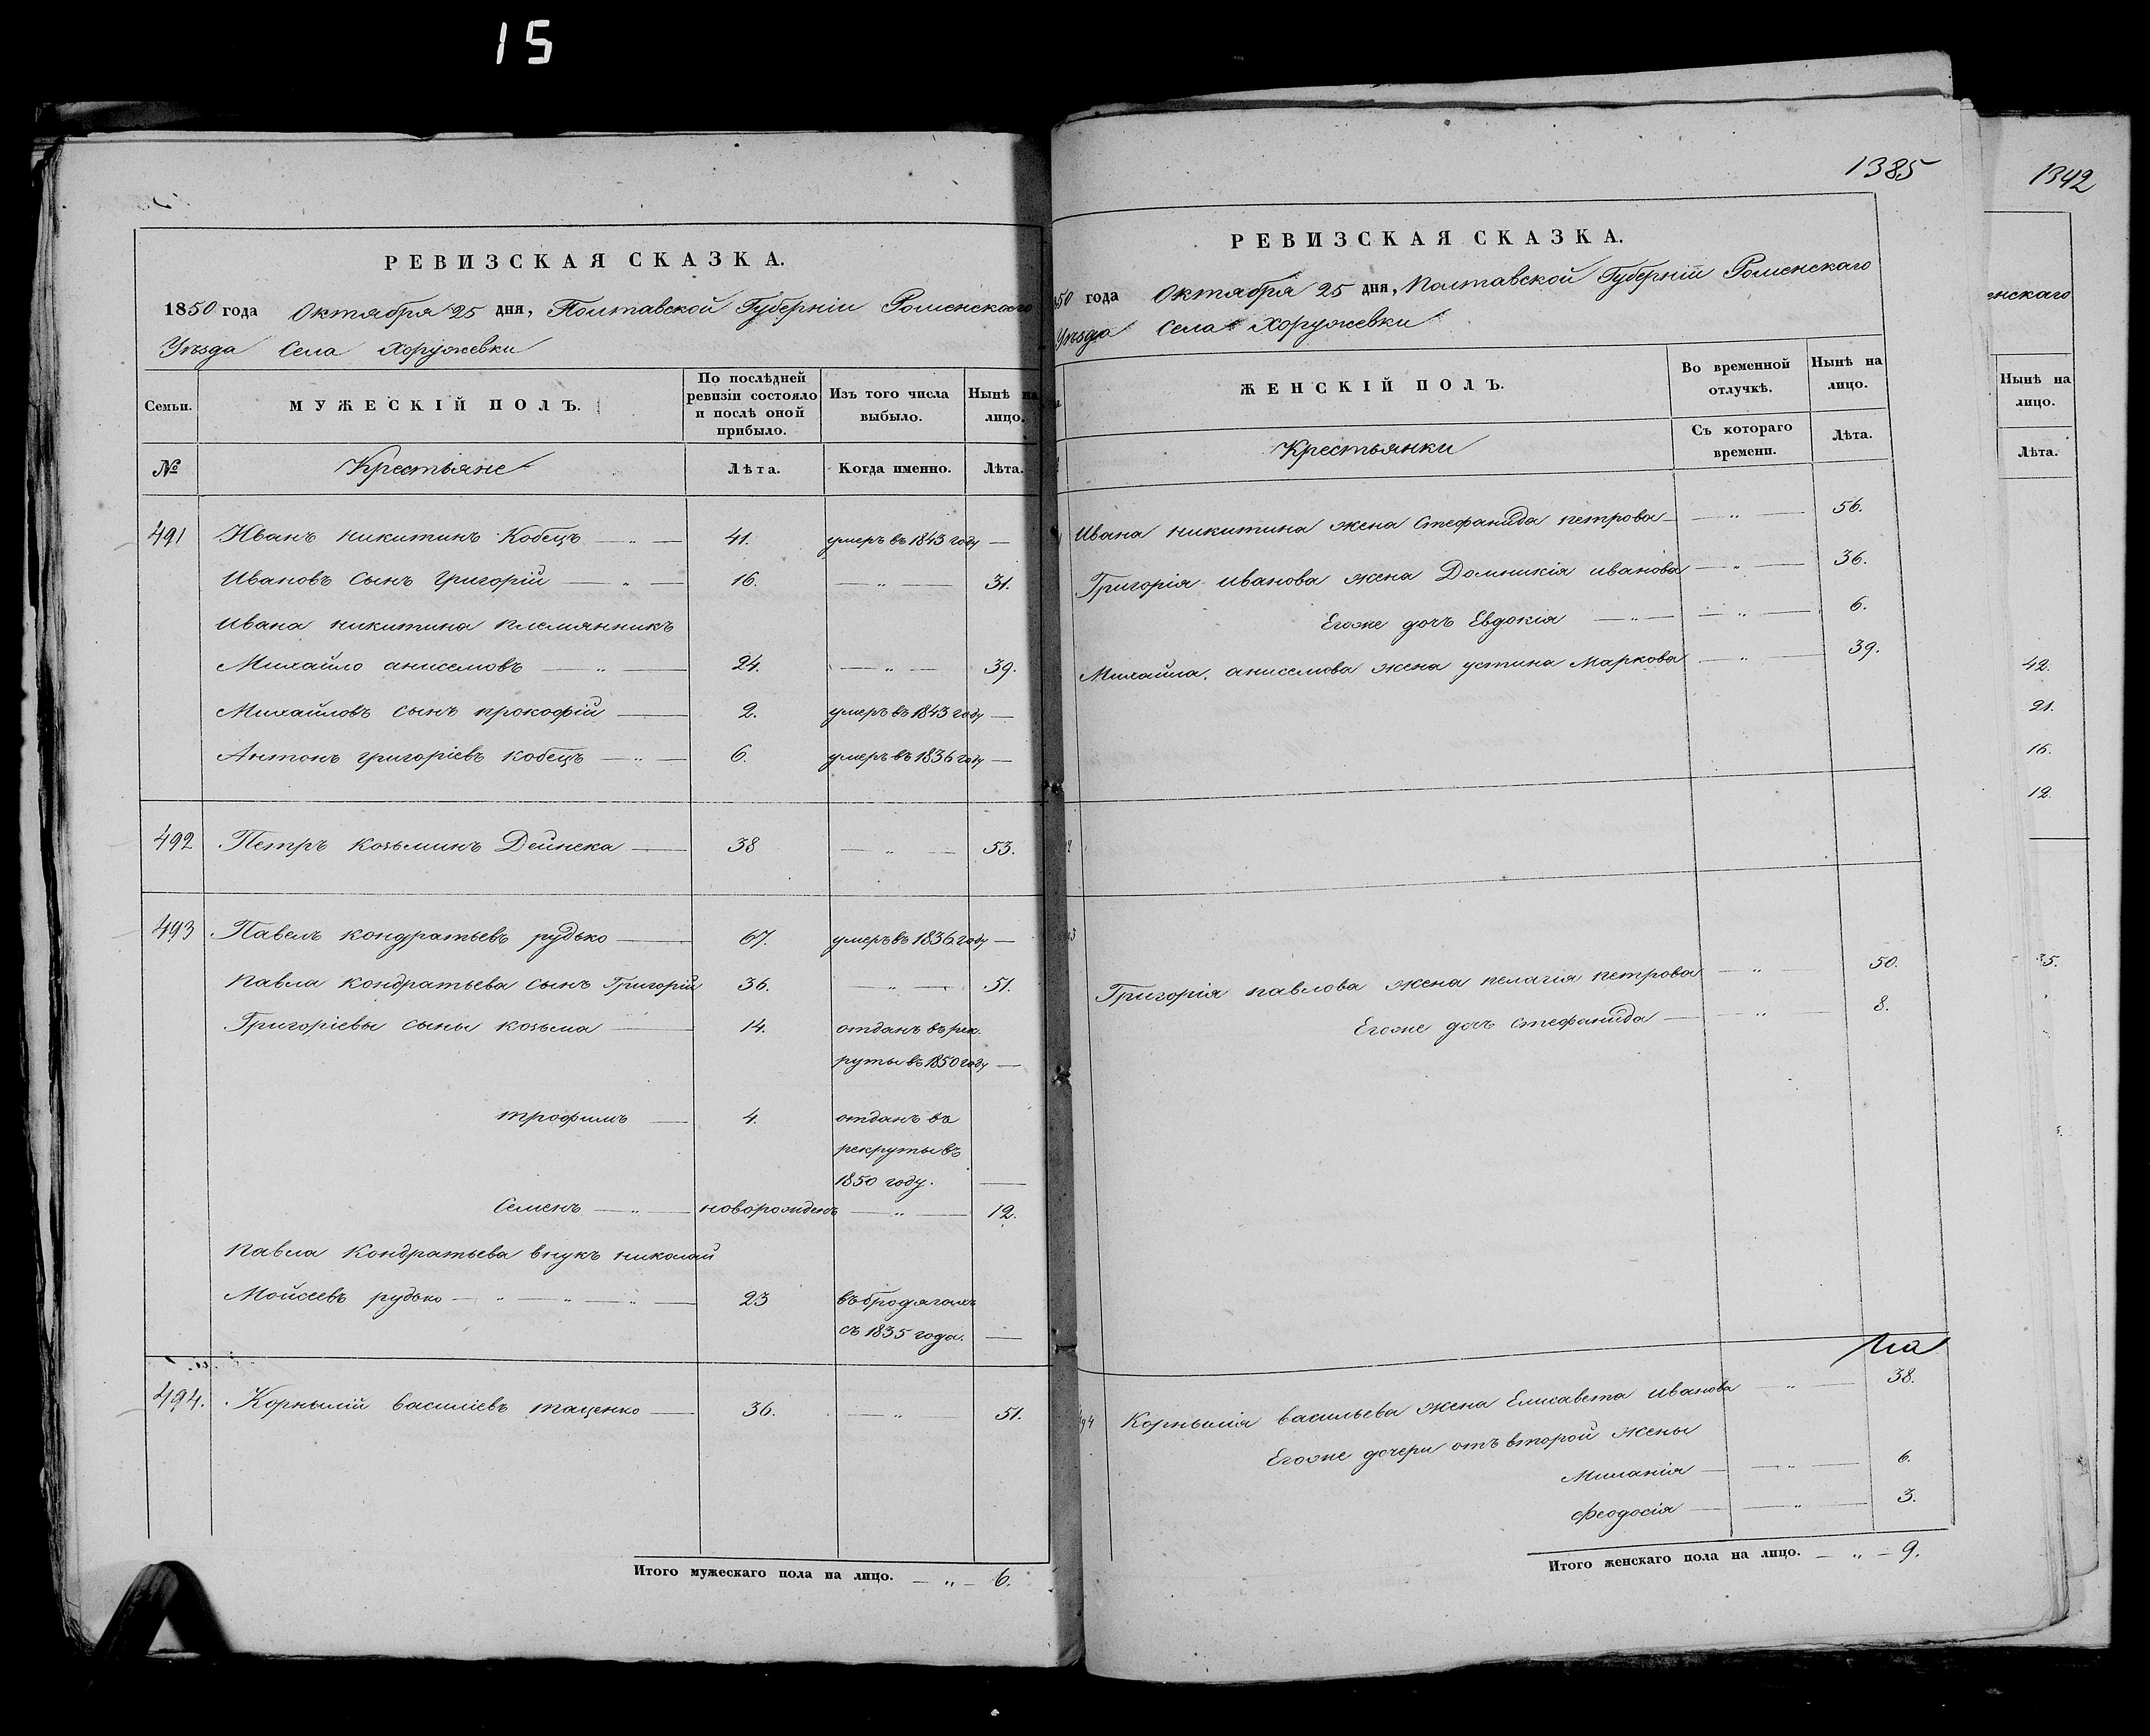 15
РЕВИЗСКАЯ СКАЗКА.
1850 года Октября 25 дня, Полтавской Губерніи Роменскаго
Уѣзда Села Хоружевки
Семьи. МУЖЕСКІЙ ПОЛЪ. По послѣдней ревизіи состояло и послѣ оной прибыло. Изъ того числа выбыло. Нынѣ на лицо.
№ Крестьяне Лѣта. Когда именно. Лѣта.
491 Иванъ никитинъ Кобецъ — „ — 41. умеръ въ 1843 году —
Ивановъ сынъ григорій — „ — 16. — „ — 31.
Ивана никитина племянникъ
Михайло анисемовъ — „ — 24. — „ — 39.
Михайловъ сынъ прокофій — 2. умеръ въ 1843 году —
Антонъ григоріевъ кобецъ — „ — 6. умеръ въ 1836 году —
492 Петръ козьминъ Дейнека — 38 — „ — 53.
493 Павелъ кондратьевъ рудько — 67. умеръ въ 1836 году —
Павла кондратьева сынъ Григорій 36. — „ — 51.
Григоріевы сыны козьма — 14. отданъ въ рек-
руты въ 1850 году —
трофимъ — 4. отданъ въ
рекруты въ
1850 году. —
Семенъ — „ — новорожденъ — „ — 12.
Павла Кондратьева внукъ николай
Мойсеевъ рудько — „ — „ — „ — 23 въ бродягахъ
съ 1835 года. —
494. Корнылій васильевъ таценко — 36. — „ — 51.
Итого мужескаго пола на лицо. — „ — 6.
1385
РЕВИЗСКАЯ СКАЗКА.
50 года Октября 25 дня, Полтавской Губерніи Роменскаго
Уѣзда Села Хоружевки
ЖЕНСКІЙ ПОЛЪ. Во временной отлучкѣ. Нынѣ на лицо.
Крестьянки Съ котораго времени. Лѣта.
Ивана никитина жена стефанида петрова — „ — 56.
Григорія иванова жена Домникія иванова — „ — 36.
Егоже дочъ Евдокія — „ — — „ — 6.
Михайла анисемова жена устина Маркова — „ — 39.
Григорія павлова жена пелагія петрова — „ — 50.
Егоже дочъ стефанида — — „ — 8.
494 Корнылія васильева жена Елисавета иванова — „ — 38.
Егоже дочери отъ второй жены
Миланія — — „ — 6.
Феодосія — — „ — 3.
Итого женскаго пола на лицо. — „ — 9.
1342
Нынѣ на
лицо.
Лѣта.
42.
21.
16.
12.
35.